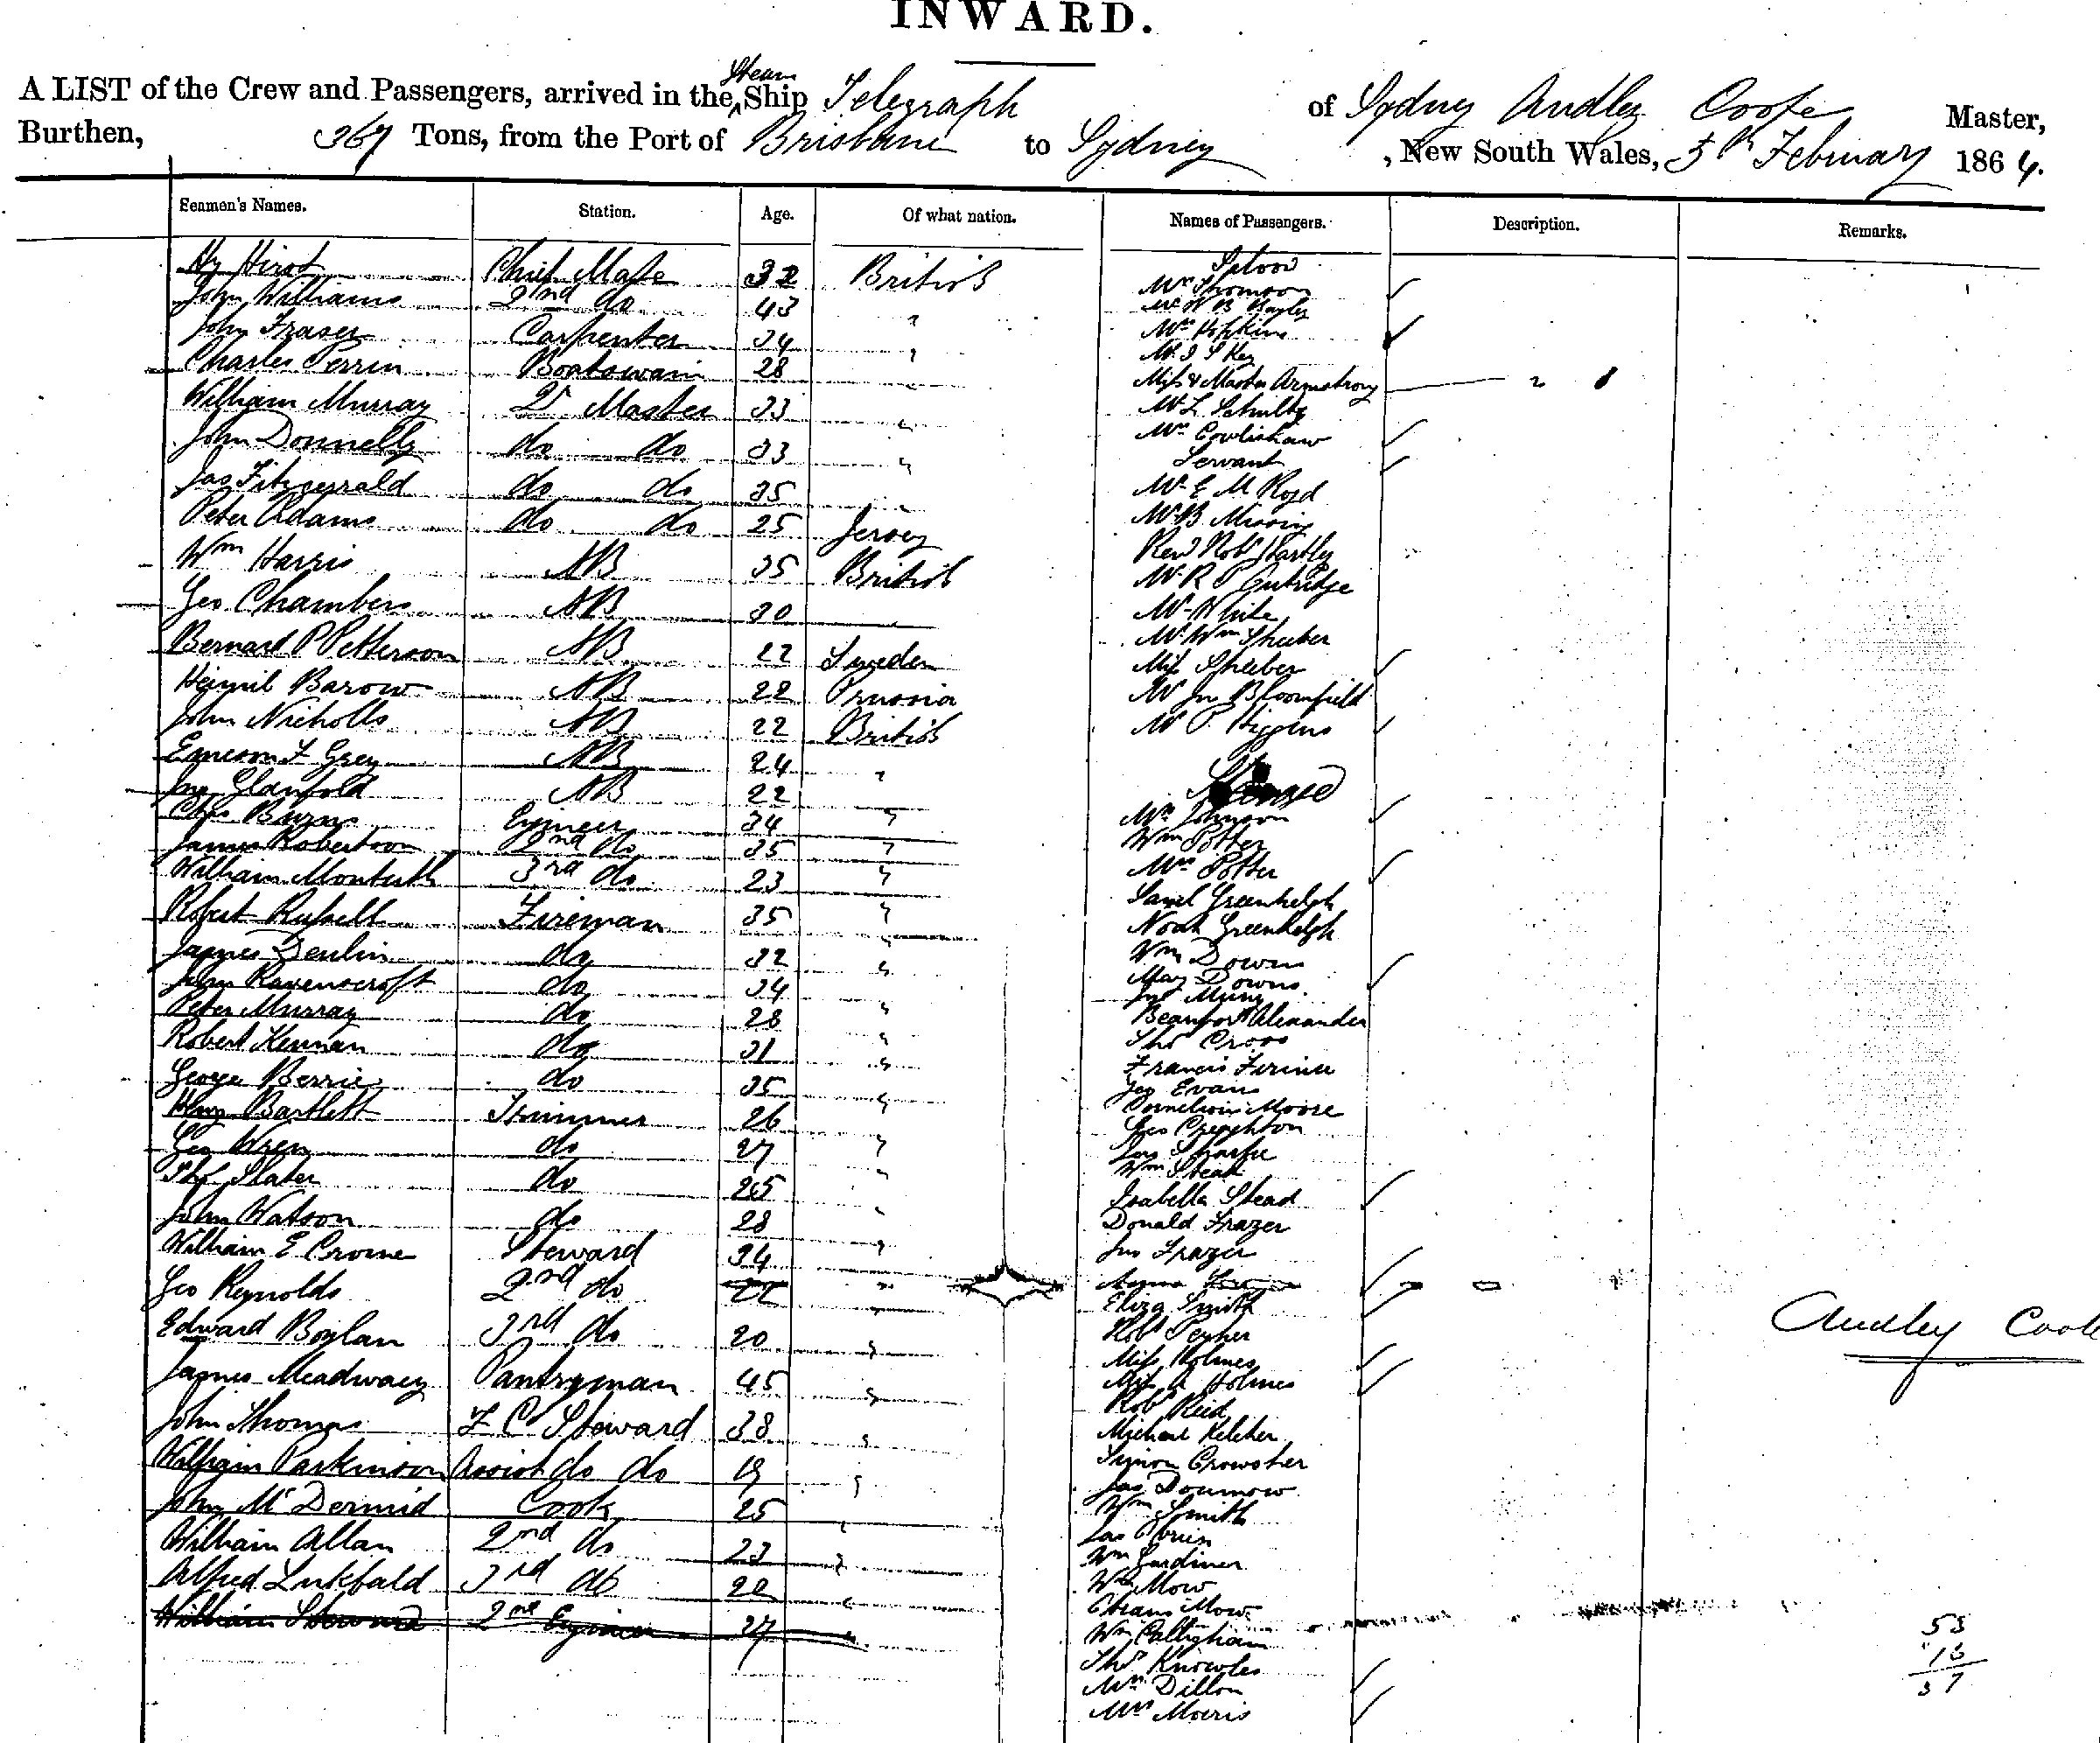 INWARD.
A LIST of the Crew and Passengers, arrived in the Steam Ship Telegraph of Sydney Audley Coote Master,
Burthen, 367 Tons, from the Port of Brisbane to Sydney, New South Wales, 5th February 1864.
Seamen's Names. Station. Age. Of what nation. Names of Passengers. Description. Remarks.
Hy Hirst Chief Mate 32 British
John Williams 2nd do 43 "
John Fraser Carpenter 34 "
Charles Perrin Boatswain 28 "
William Murray 2r Master 33 "
John Donnelly do do 33 "
Jas Fitzgerald do do 35 "
Peter Adams do do 25 Jersey
Wm Harris AB 35 British
Geo Chambers AB 30
Bernard P Petterson AB 22 Sweden
Barow AB 22 Prussia
John Nicholls AB 22 British
F Grey AB 24 "
Glanfold AB 22
Chas Burns Engineer 34 "
James Robertson 2nd do 35 "
William Monteith 3rd do 23 "
Robert Russell Fireman 35 "
James Denlin do 32 "
John Ravenscroft do 34 "
Peter Murray do 28 "
Robert Kennan do 31 "
George Berrie do 35 "
Henry Bartlett Trimmer 26 "
Geo Wren do 27 "
Slater do 25 "
John Watson do 28 "
William E Crome Steward 34 "
Geo Reynolds 2nd do 22 "
Edward Boylan 3rd do 20 "
James Meadway Pantryman 45 "
John Thomas F C Steward 38 "
William Parkinson Assist do do 19 "
John McDermid Cook 25 "
William Allan 2nd do 23 "
Alfred 3rd do 20 "
William Steward 2nd Engineer 27
Saloon
Mrs Thomson
Mr W B Bayley
Mrs Hipkins
Mr J S Key
Miss & Master Armstrong
Mr L Schultz
Mrs Cowlishaw
Servant
Mr E M Royd
Mr B
Revd Robt Hartley
Mr R P Gutridge
Mr White
Mr Wm Sheeber
Miss Sheeber
Mr Jn Bloomfield
Mr P. Higgins
Steerage
Mrs Johnson
Wm Potter
Mrs Potter
Saml Greenhelgh
Noah Greenhelgh
Wm Downs
Mary Downs
Beaufort Alexander
Thos Cross
Francis
Evans
Cornelius Moore
Geo Creighton
Jas Sharpe
Wm Stead
Isabella Stead
Donald Frazer
Jno Frazer
Eliza Smith
Robt
Miss Holmes
Miss A Holmes
Robt Reid
Michael Keleher
Simon Crowther
Jas
Wm Smith
Jas OBrien
Wm Gardiner
Wm Mow
Mow
Wm Calligham
Thos Knowles
Mrs Dillon
Mrs Morris
Audley Coote